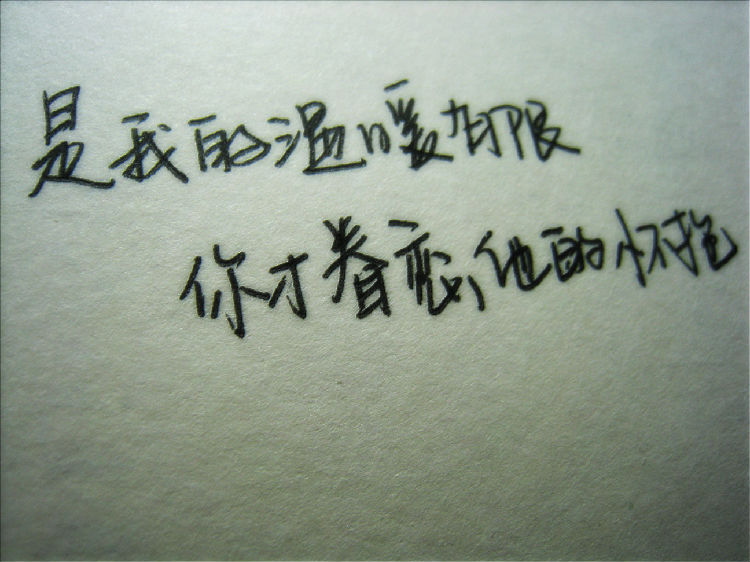 是我的温暖有限
你才眷恋他的怀抱